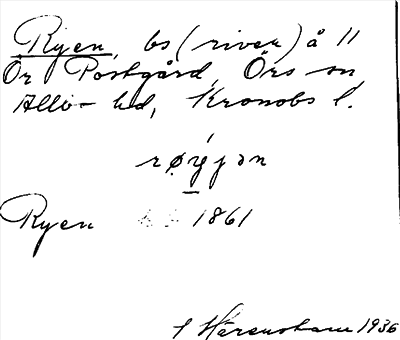 Ryen, bs (river) å 11
Ör Postgård, Örs sn
Allbo hd, Kronobs l.
røyjən
Ryen 1861
Härenstam 1936